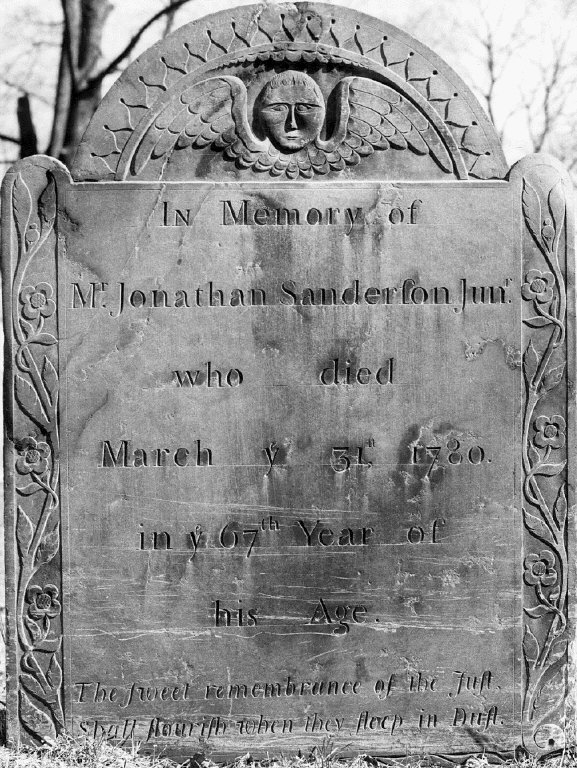 In Memory of
Mr. Jonathan Sanderſon Junr.
who died
March ye 31st, 1780.
in ye 67th Year of
his Age.
The ſweet remembrance of the Juſt,
Shall flouriſh when they ſleep in Duſt.